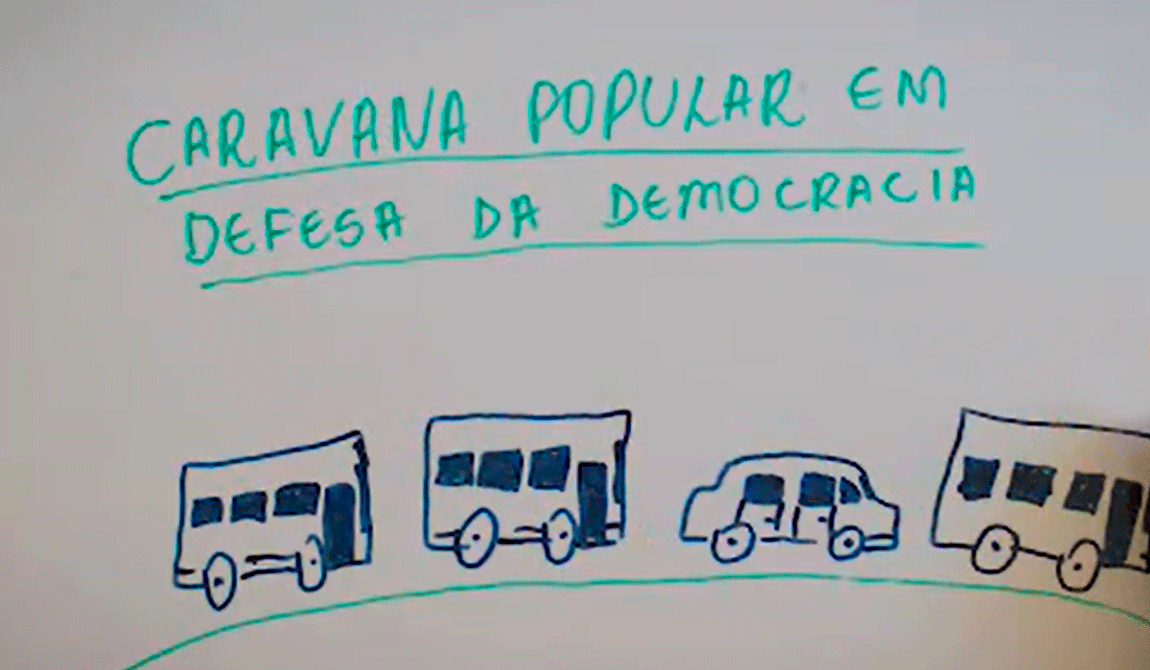 CARAVANA POPULAR EM
DEFESA DA DEMOCRACIA